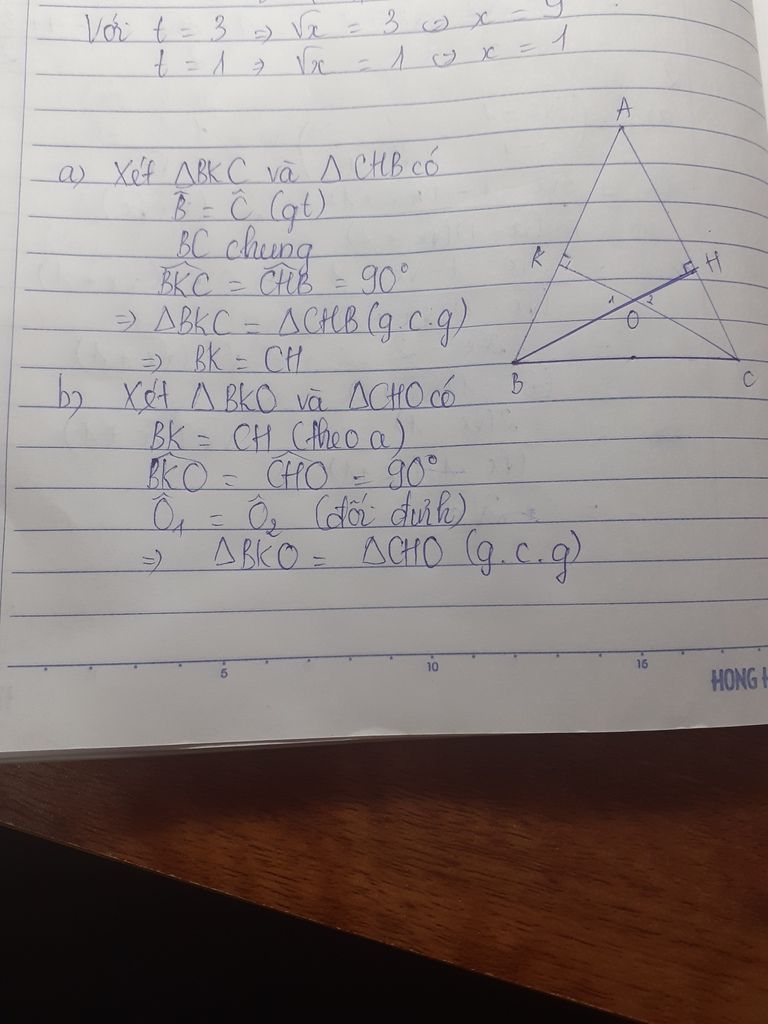 Với t = 3 => √x = 3 <=> x = 9
t = 1 => √x = 1 <=> x = 1
A
a) Xét ΔBKC và ΔCHB có
B̂ = Ĉ (gt)
BC chung
K
H
BKC = CHB = 90°
1
2
=> ΔBKC = ΔCHB (g.c.g)
O
=> BK = CH
B
C
b) Xét ΔBKO và ΔCHO có
BK = CH (theo a)
BKO = CHO = 90°
Ô1 = Ô2 (đối đỉnh)
=> ΔBKO = ΔCHO (g.c.g)
5
10
15
HONG H